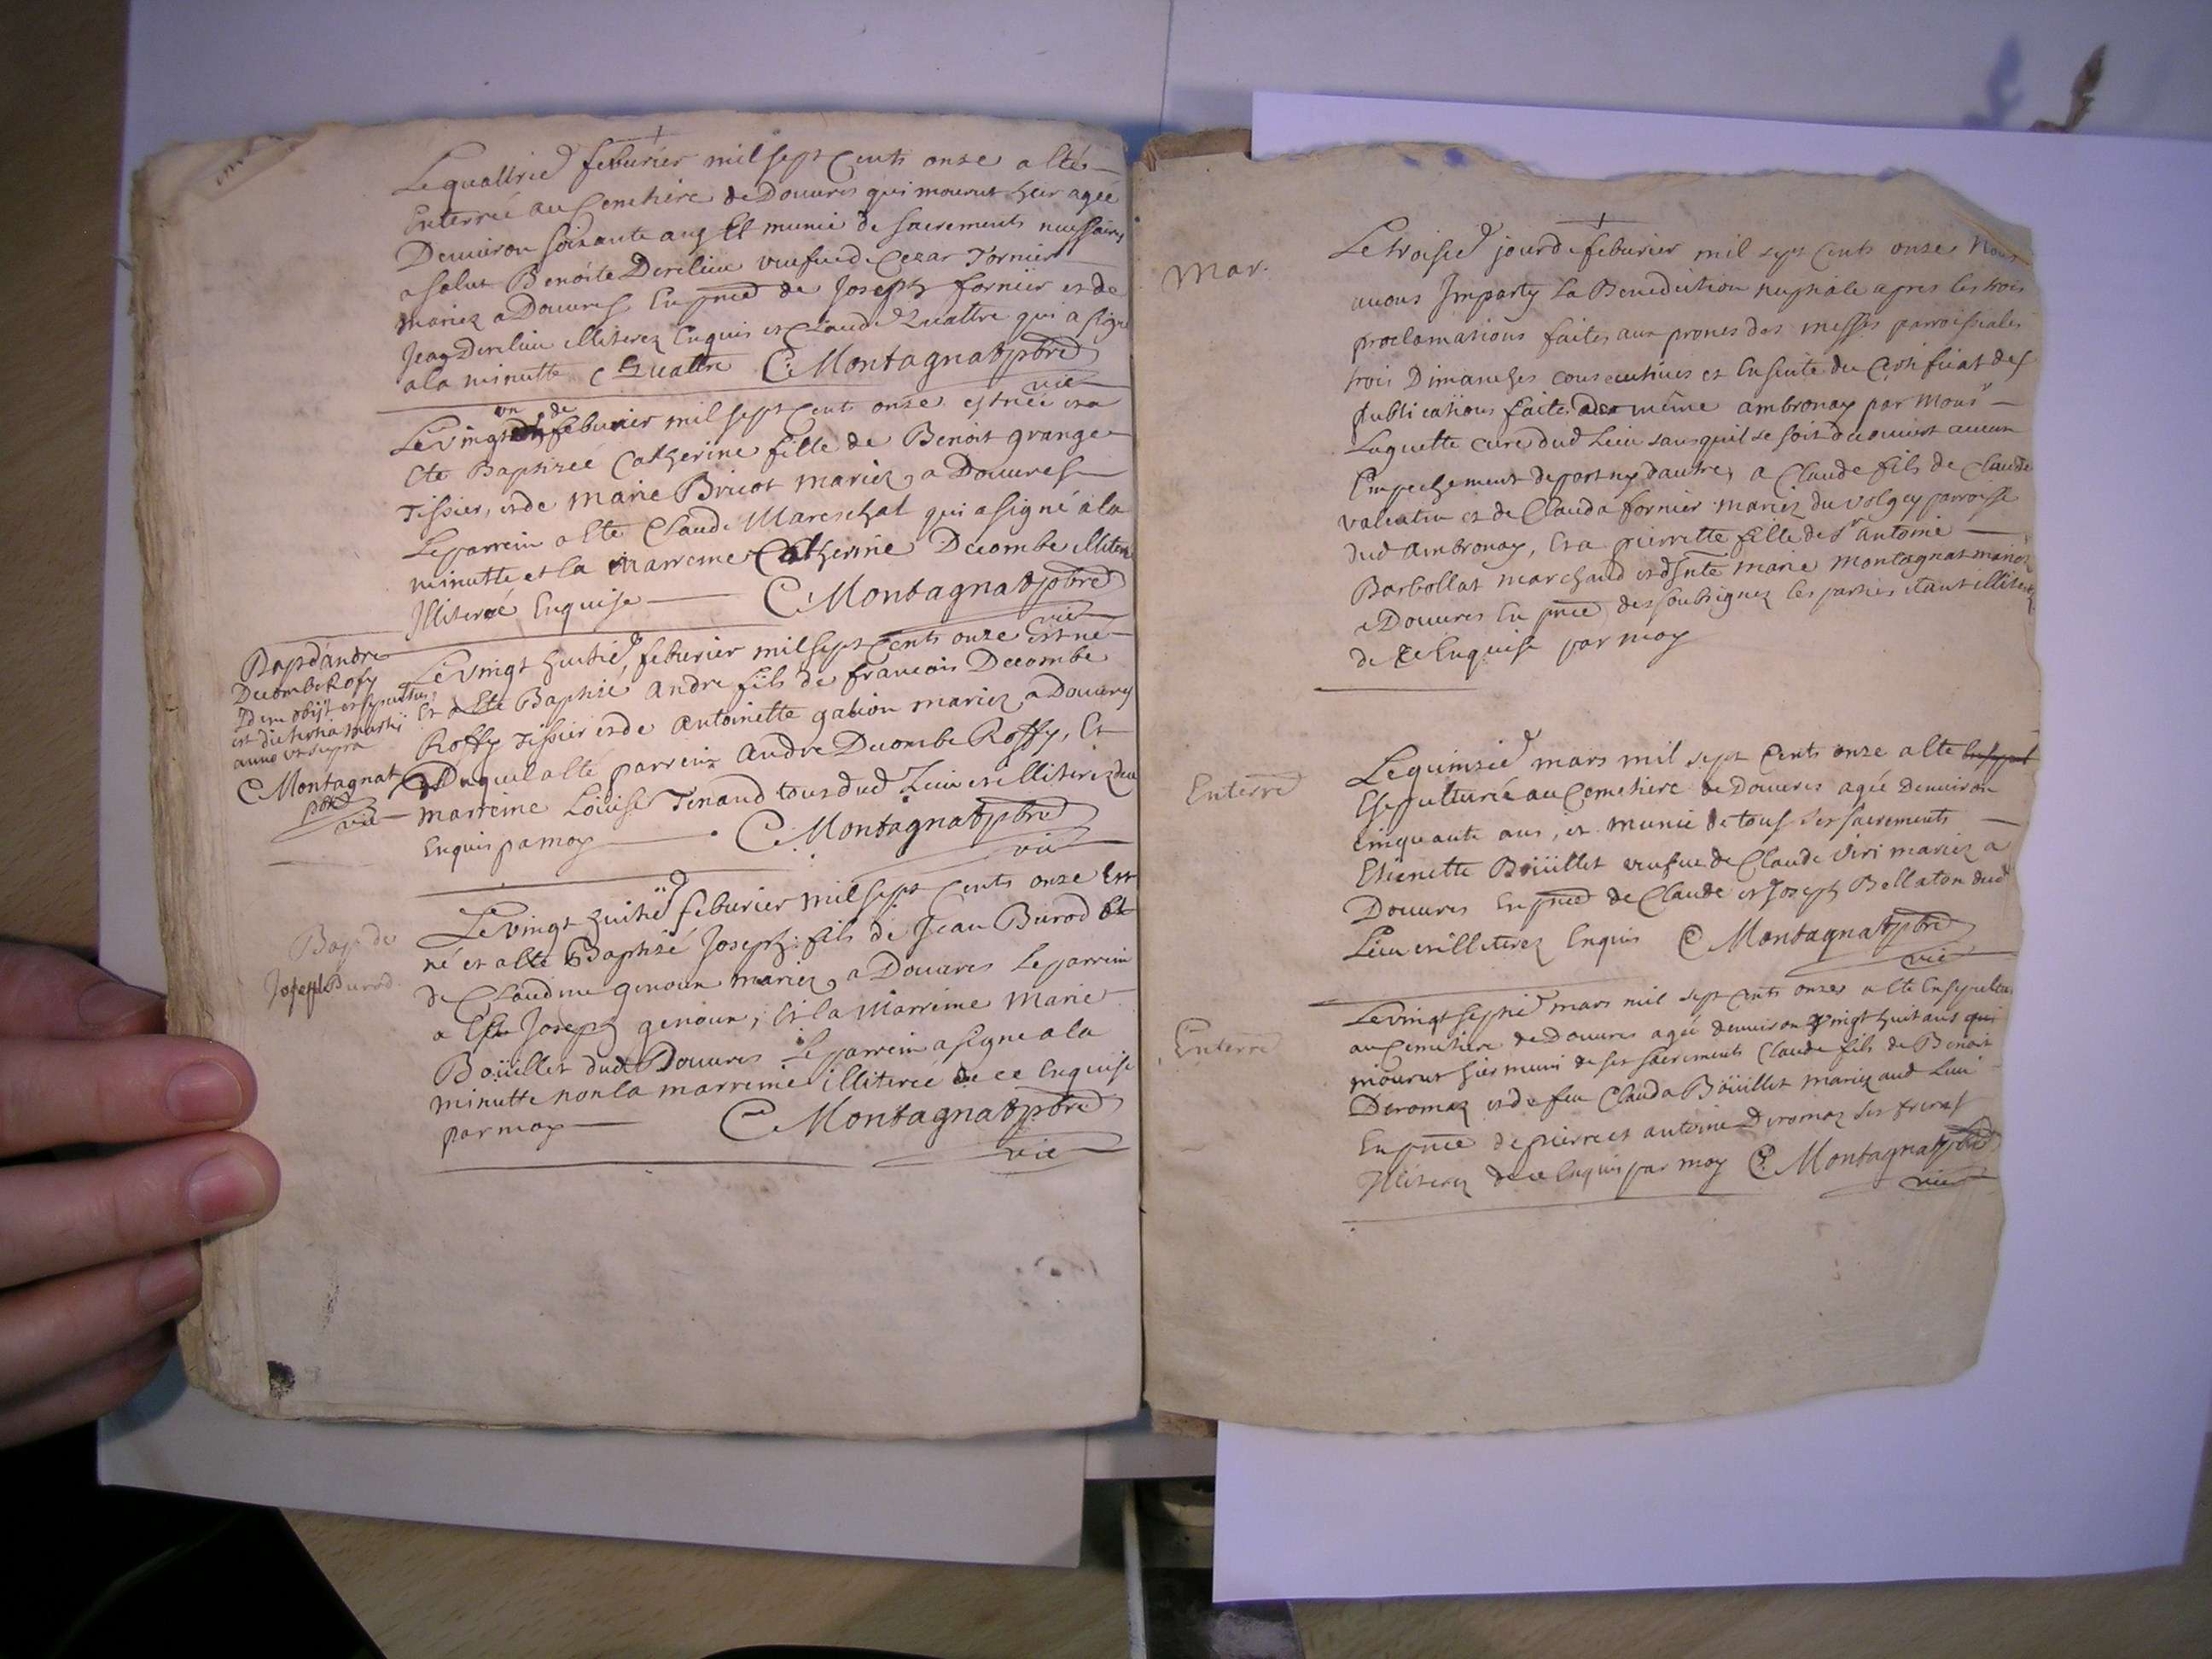 Le quattrie feburier mil sept cents onze a Eté
Enterrée au Cemetiere de Douures qui mourut hier agée
Denuiron soixante ans Et munie de sacrements
a salut Benoite Derelieu veufue de Cezar Fornier
mariez a Douures En pnce de Joseph fornier et de
Jean Derelieu illiterez Enquis et Claude Quattre qui a signé
a la minutte C Quattre C. Montagnat pbre
vic
Le vingt un de feburier mil sept cents onze est née et a
Eté Baptisée Catherine fille de Benoit grange
Tissier, et de marie Bricot mariez a Douures
Le parrein a Eté Claude Mareschal qui a signé a la
minutte et la Marreine Catherine Decombe
Illiterée Enquise C. Montagnat pbre
vic
Bapt d'andre
Decombe Roffy
Idem obijt et sepultus
est die tertia martij
anno ut supra
C Montagnat
pbre
vic
Le vingt huitie feburier mil sept cents onze Est né
Et a Eté Baptisé andre fils de francois Decombe
Roffy Tissier et de antoinette gabion mariez a Douures
Duquel a Eté parrein andre Decombe Roffy, Et
marreine Louise Tenand tous dud Lieu et illiterez de ce
Enquis pa moy C. Montagnat pbre
vic
Bap de
Joseph Burod
Le vingt huitie feburier mil sept cents onze Est
né et a Eté Baptisé Joseph fils de Jean Burod Et
de Claudine genoux mariez, a Douures Le parrein
a Esté Joseph genoux, Et la Marreine Marie
Boüillet dud Douures Le parrein a signe a la
minutte non la marreine illiterée de ce Enquise
par moy C. Montagnat pbre
vic
Mar.
Le troisie jour de feburier mil sept cents onze Nous
auons Imparty La Benediction nuptiale apres les trois
proclamations faites aux prones des messes parroissiales
trois Dimanches consecutiues et Ensuite du Certificat des
publications faites même ambronay par Monsr
Luquette cure dud Lieu sans quil se soit decouuert aucun
Empechement de part ny dautre, a Claude fils de Claude
valentin et de Clauda fornier mariez du volgey parroisse
dud ambronay, Et a pierrette fille de sr antoine
Barbollat marchand et dhnte marie montagnat mariez
a Douures En pnce des soubsignez les parties etant illiterez
de ce Enquise par moy
Enterre
Le quinzie mars mil sept cents onze a Eté
Esepulturée au Cemetiere de Douures agée denuiron
cinquante ans, et munie de tous ses sacrements
Etienette Boüillet veufue de Claude Viri mariez a
Douures En pnce de Claude et Joseph Bellaton dud
Lieu et illiterez Enquis C Montagnat pbre
vic
Enterre
Le vingt septie mars mil sept cents onze a Eté
au Cemetiere de Douures agée denuiron vingt huit ans qui
mourut hier muni de ses sacrements Claude fils de Benoit
Deromaz et de feu Clauda Boüillet mariez aud Lieu
En pnce de pierre et antoine Deromaz ses freres
Illiterez de ce Enquis par moy C. Montagnat pbre
vic